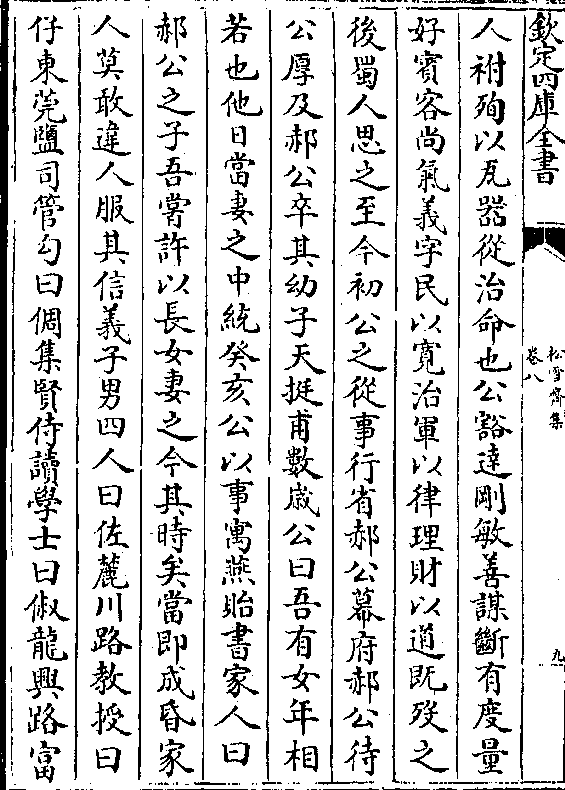 欽定四庫全書
松雪齋集
卷八
九
人祔殉以瓦器從治命也公豁達剛敏善謀斷有度量
好賓客尚氣義字民以寬治軍以律理財以道既歿之
後蜀人思之至今初公之從事行省郝公幕府郝公待
公厚及郝公卒其幼子天挺甫數歲公曰吾有女年相
若也他日當妻之中統癸亥公以事寓燕貽書家人曰
郝公之子吾嘗許以長女妻之今其時矣當即成昏家
人莫敢違人服其信義子男四人曰佐麓川路教授曰
仔東莞鹽司管勾曰倜集賢侍讀學士曰俶龍興路富